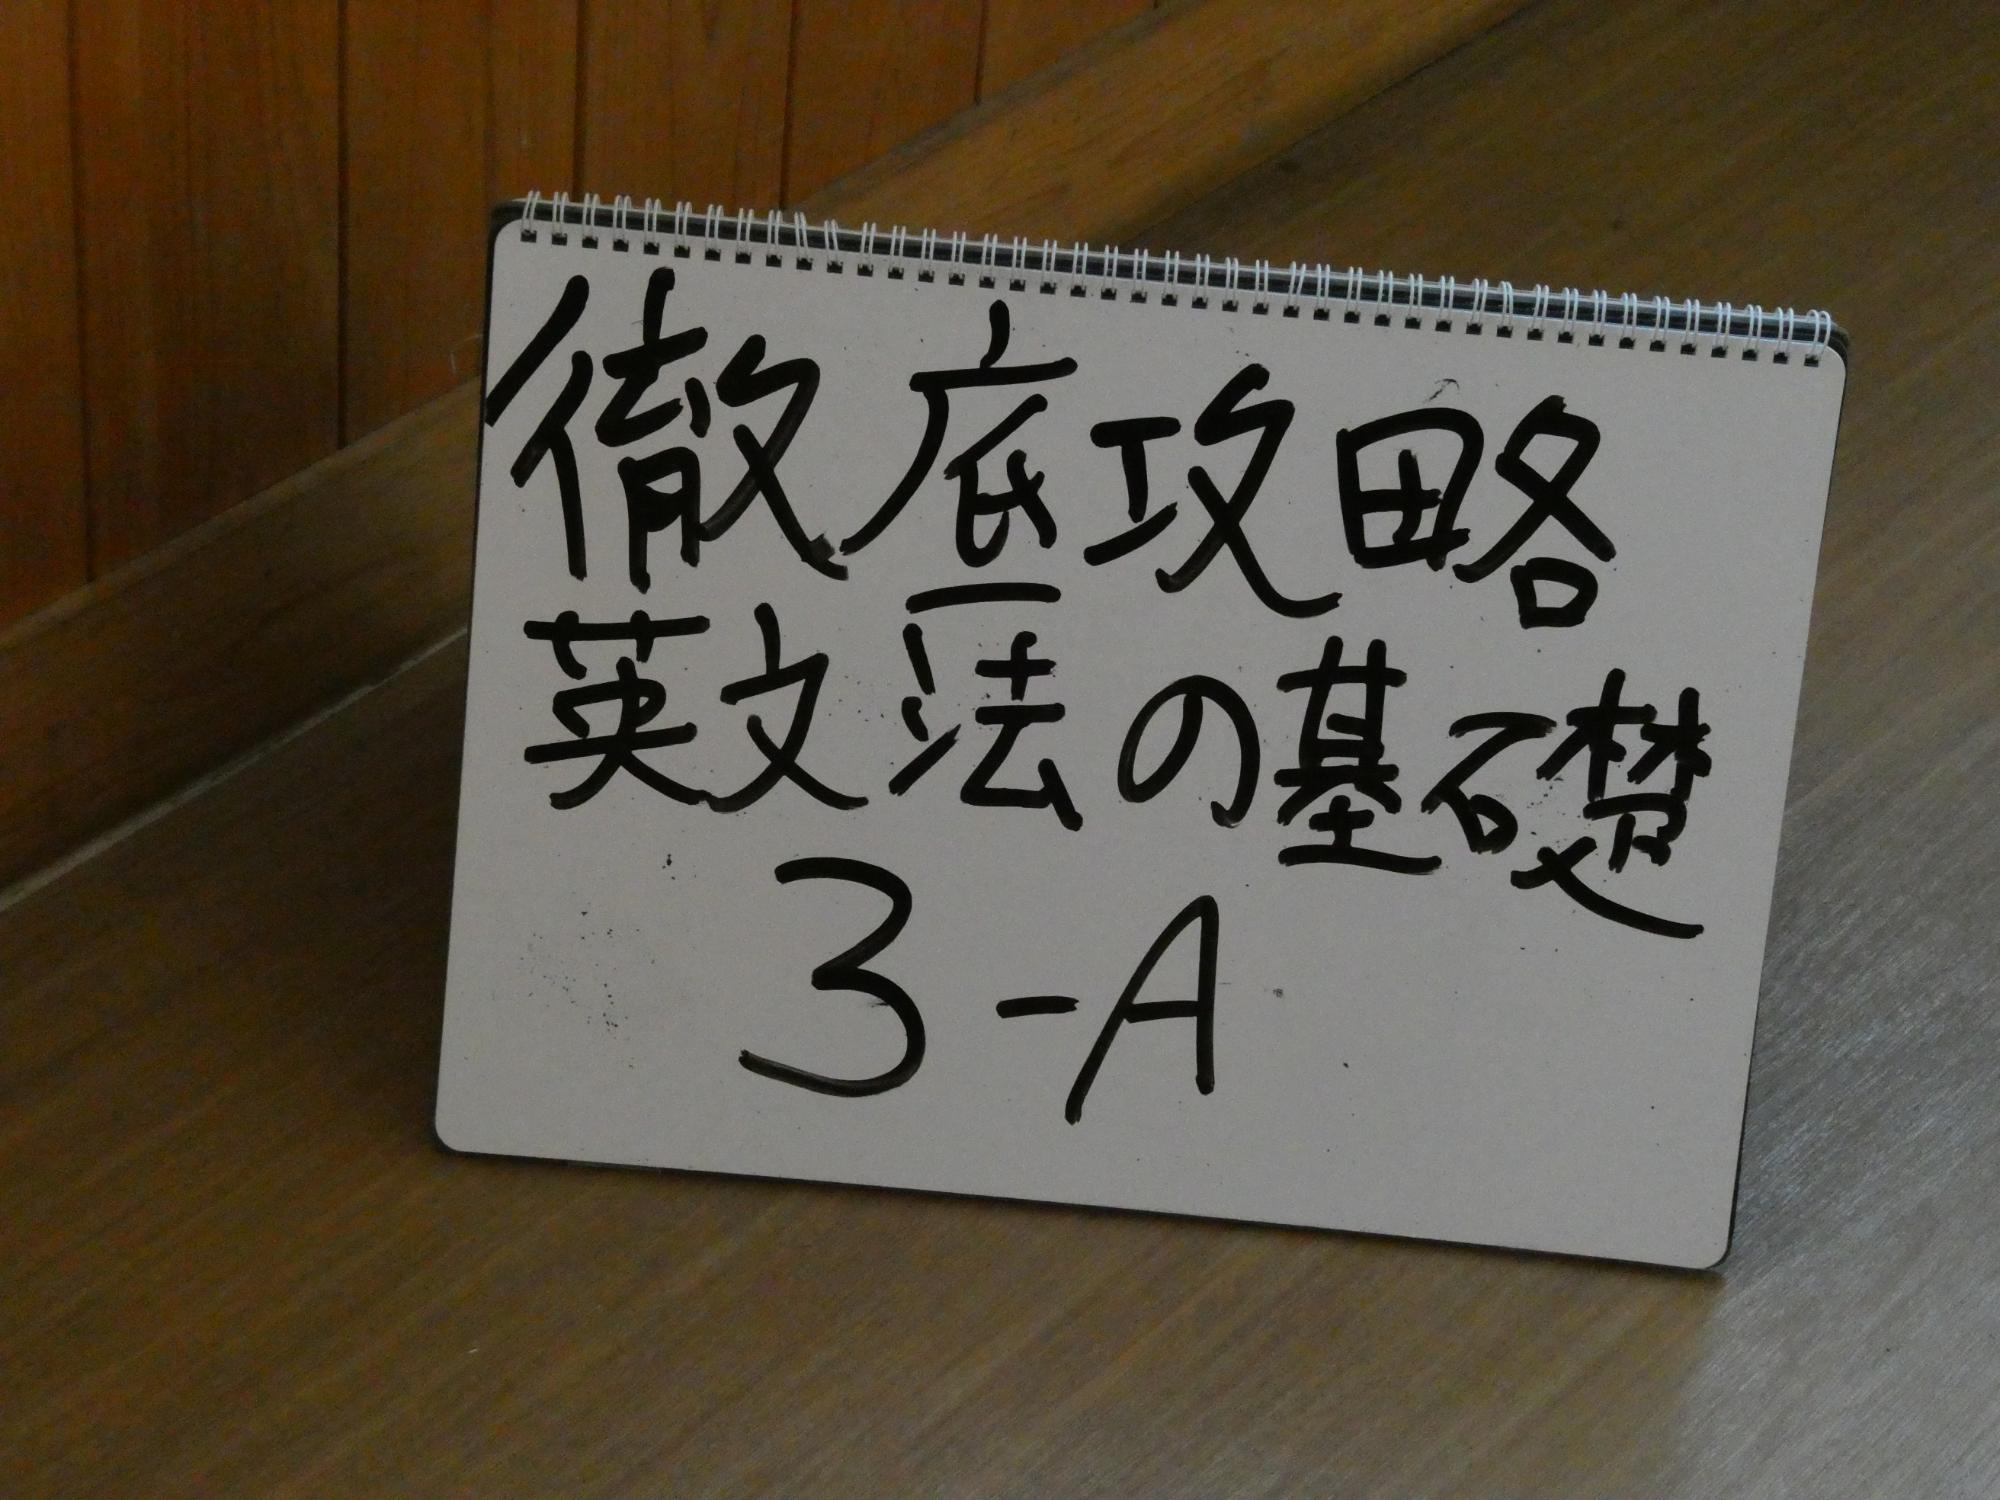 徹底攻略
英文法の基礎
3-A